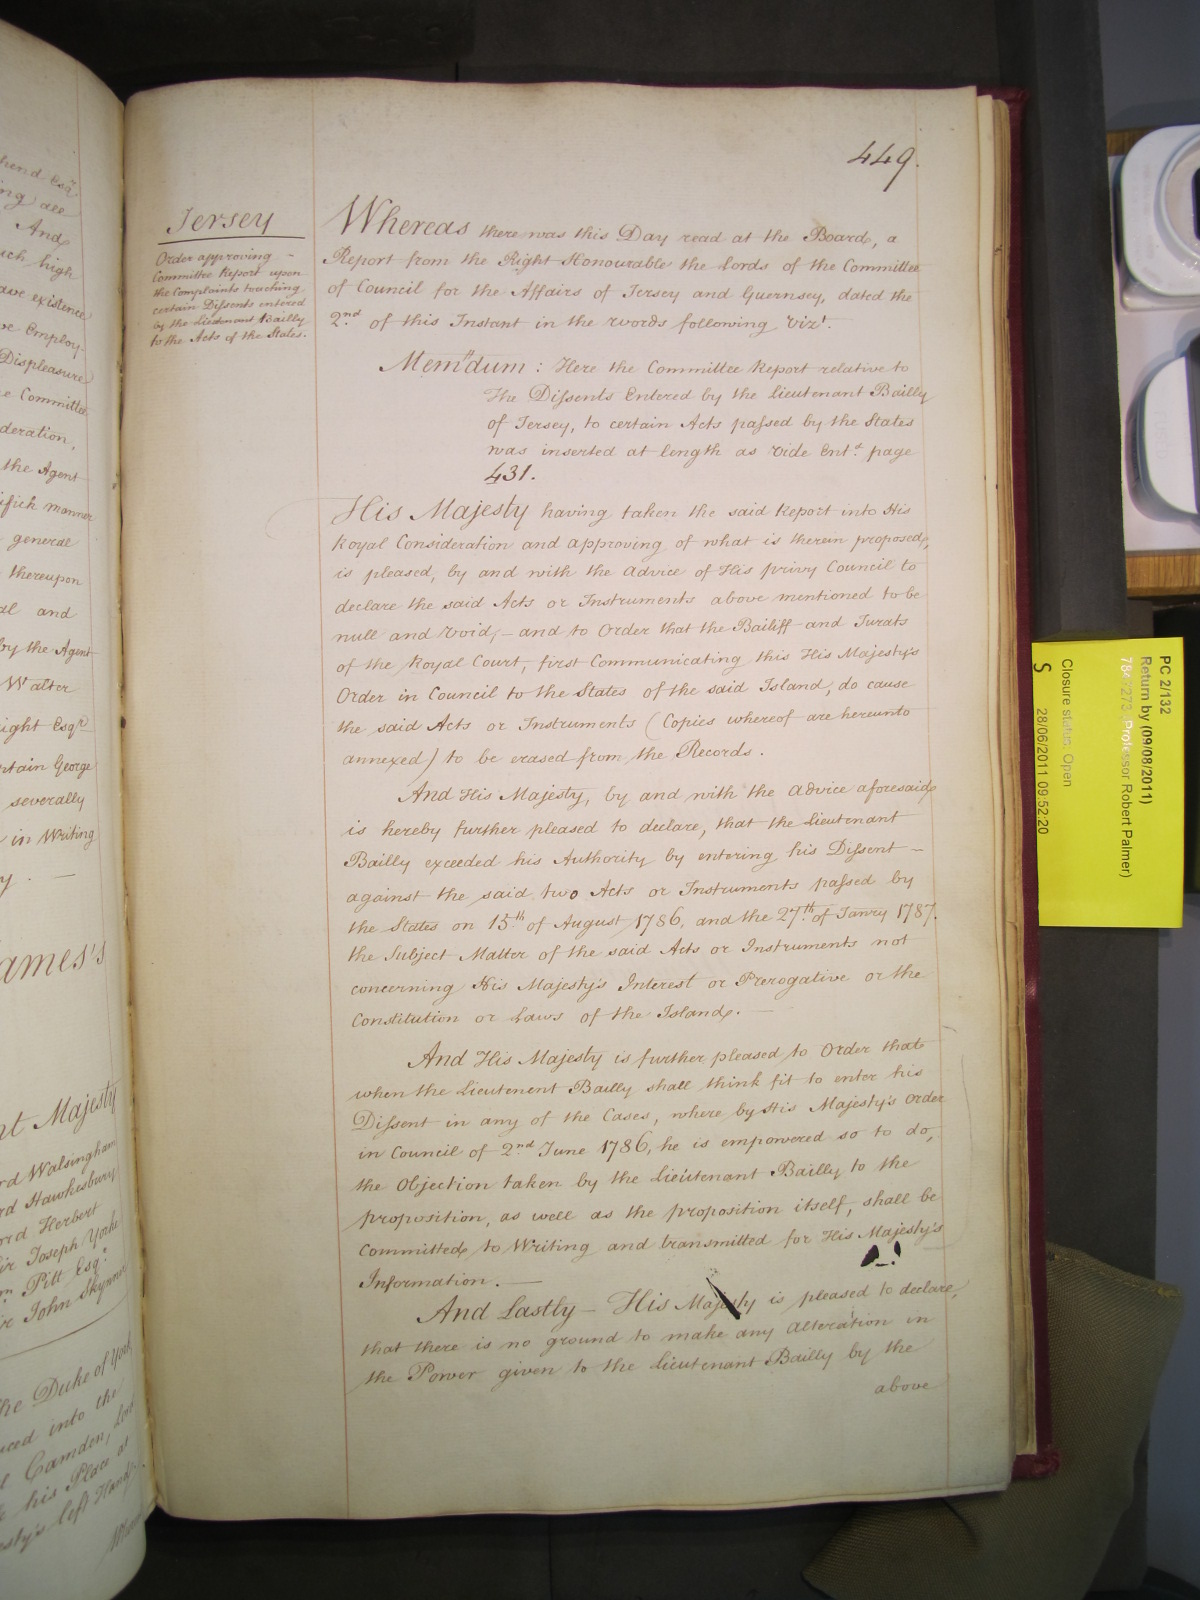 449.
Jersey
Order approving –
Committee Report upon
the Complaints touching
certain Dissents entered
by the Lieutenant Bailly
to the Acts of the States.
Whereas there was this Day read at the Board, a
Report from the Right Honourable the Lords of the Committee
of Council for the Affairs of Jersey and Guernsey, dated the
2nd of this Instant in the words following vizt.
Memdum: Here the Committee Report relative to
the Dissents Entered by the Lieutenant Bailly
of Jersey, to certain Acts passed by the States
was inserted at length as vide Entd. page
431.
His Majesty having taken the said Report into His
Royal Consideration and approving of what is therein proposed,
is pleased, by and with the Advice of His privy Council to
declare the said Acts or Instruments above mentioned to be
null and void, – and to Order that the Bailiff and Jurats
of the Royal Court, first Communicating this His Majesty's
Order in Council to the States of the said Island, do cause
the said Acts or Instruments (Copies whereof are hereunto
annexed) to be erased from the Records.
And His Majesty, by and with the Advice aforesaid
is hereby further pleased to declare, that the Lieutenant
Bailly exceeded his Authority by entering his Dissent –
against the said two Acts or Instruments passed by
the States on 15th of August 1786, and the 27th of Janry 1787.
the Subject Matter of the said Acts or Instruments not
concerning His Majesty's Interest or Prerogative or the
Constitution or Laws of the Island. —
And His Majesty is further pleased to Order that
when the Lieutenent Bailly shall think fit to enter his
Dissent in any of the Cases, where by His Majesty's Order
in Council of 2nd June 1786, he is empowered so to do,
the Objection taken by the Lieutenant Bailly to the
proposition, as well as the proposition itself, shall be
Committed to Writing and transmitted for His Majesty's
Information. —
And Lastly – His Majesty is pleased to declare,
that there is no ground to make any Alteration in
the Power given to the Lieutenant Bailly by the
above
hend Esqr
ing all
And
uch high
ave existence
Employ-
Displeasure
Committee
deration,
the Agent
ifick manner
general
thereupon
and
by the Agent
Walter
ight Esqr
rtain George
severally
in Writing
ames's
nt Majesty
rd Walsingham
rd Hawkesbury
ord Herbert
ir Joseph Yorke
m Pitt Esqr.
ir John Skynner
he Duke of York
uced into the
Camden, Lord
his Place at
esty's left Hand
PC 2/132
Return by (09/08/2011)
Professor Robert Palmer)
Closure status: Open
S
28/06/2011 09:52:20